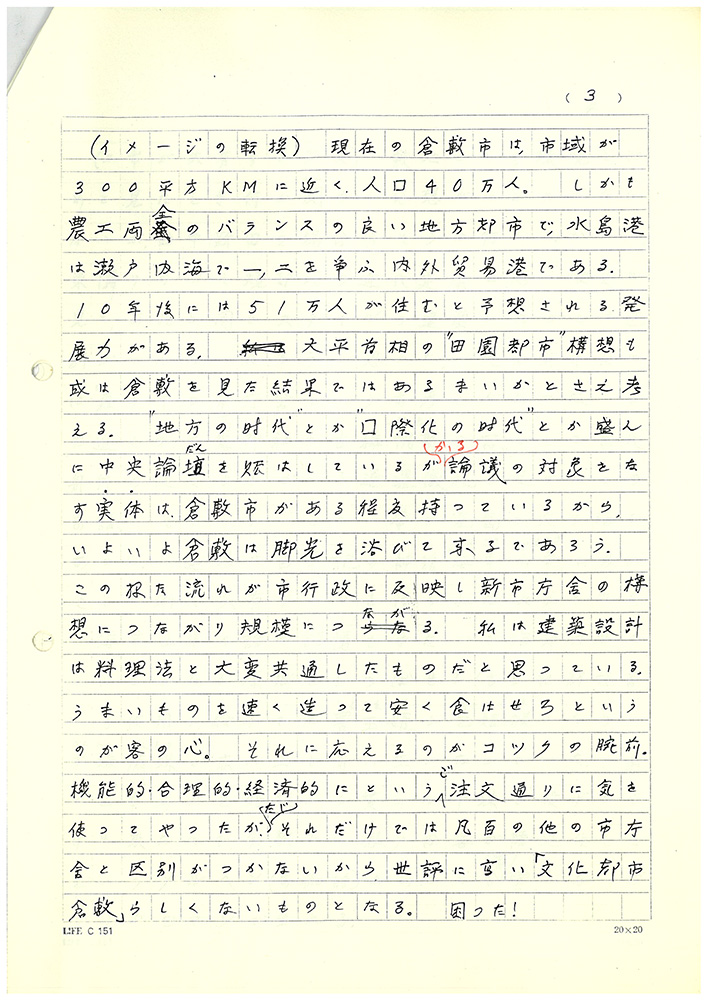 (3)
(イメージの転換) 現在の倉敷市は、市域が
300平方KMに近く、人口40万人。 しかも
農工両全のバランスの良い地方都市で、水島港
は瀬戸内海で一、二を争ふ内外貿易港である。
10年後には51万人が住むと予想される発
展力がある。 大平首相の"田園都市"構想も
或は倉敷を見た結果ではあるまいかとさえ考
える。 "地方の时代"とか"口際化の时代"とか盛ん
に中央論壇だんを賑はしているがかゝる論議の対象をな
す実体は、倉敷市がある程度持っているから、
いよいよ倉敷は脚光を浴びて来るであろう。
この様な流れが市行政に反映し新市庁舎の構
想につながり規模につながる。 私は建築設計
は料理法と大変共通したものだと思っている。
うまいものを速く造って安く食はせろという
のが客の心。 それに応えるのがコックの腕前。
機能的・合理的・経済的にというご注文通りに気を
使ってやったが、たゞそれだけでは凡百の他の市庁
舎と区別がつかないから、世評に高い「文化都市
倉敷」らしくないものとなる。 困った!
LIFE C 151
20×20